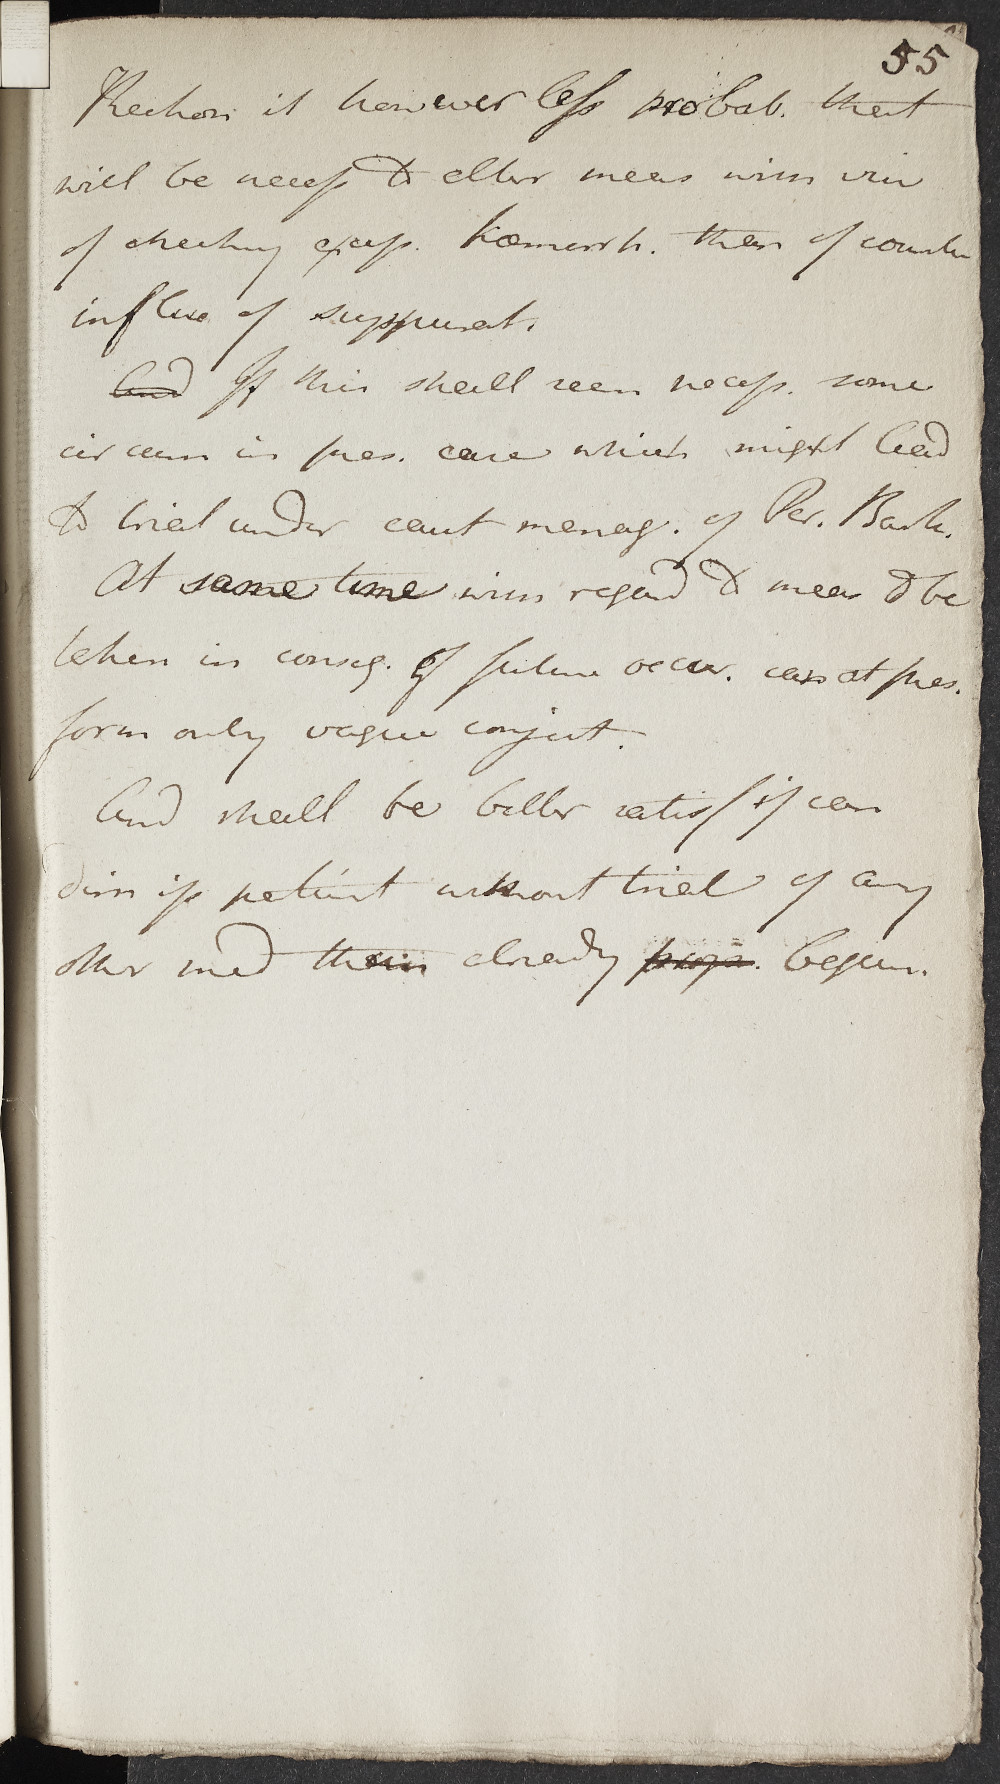 55
Reckon it however less probab. that
will be necess to alter meas with view
of checking excess. haemorrh. than of counter
influe of suppurat.
And If this shall seem necess. some
circum in pres. case which might lead
to trial under caut manag. of Per. Bark.
At same time with regard to meas to be
taken in conseq. of future occur. can at pres.
form only vague conject.
And shall be better satisf if can
dimiss patient without trial of any
other med than already prop. begun.